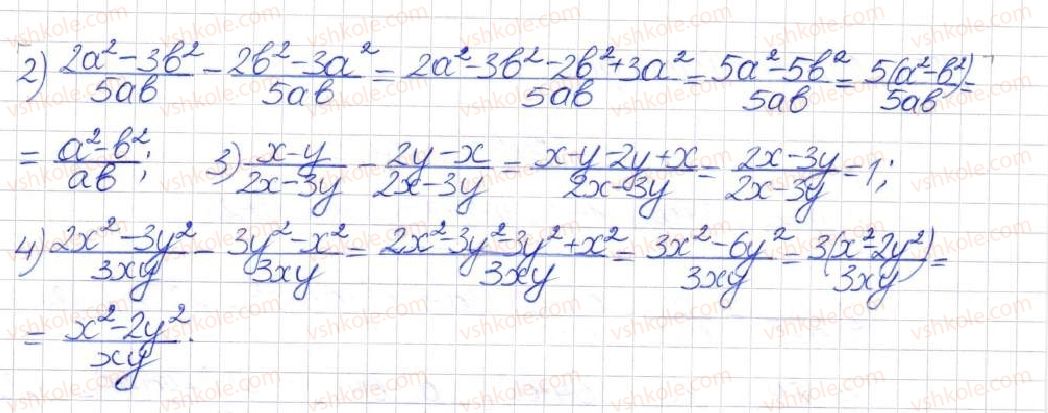 2) (2a² – 3b²)/(5ab) – (2b² – 3a²)/(5ab) = (2a² – 3b² – 2b² + 3a²)/(5ab) = (5a² – 5b²)/(5ab) = 5(a² – b²)/(5ab) =
= (a² – b²)/(ab); 3) (x – y)/(2x – 3y) – (2y – x)/(2x – 3y) = (x – y – 2y + x)/(2x – 3y) = (2x – 3y)/(2x – 3y) = 1;
4) (2x² – 3y²)/(3xy) – (3y² – x²)/(3xy) = (2x² – 3y² – 3y² + x²)/(3xy) = (3x² – 6y²)/(3xy) = 3(x² – 2y²)/(3xy) =
= (x² – 2y²)/(xy).
vshkole.com